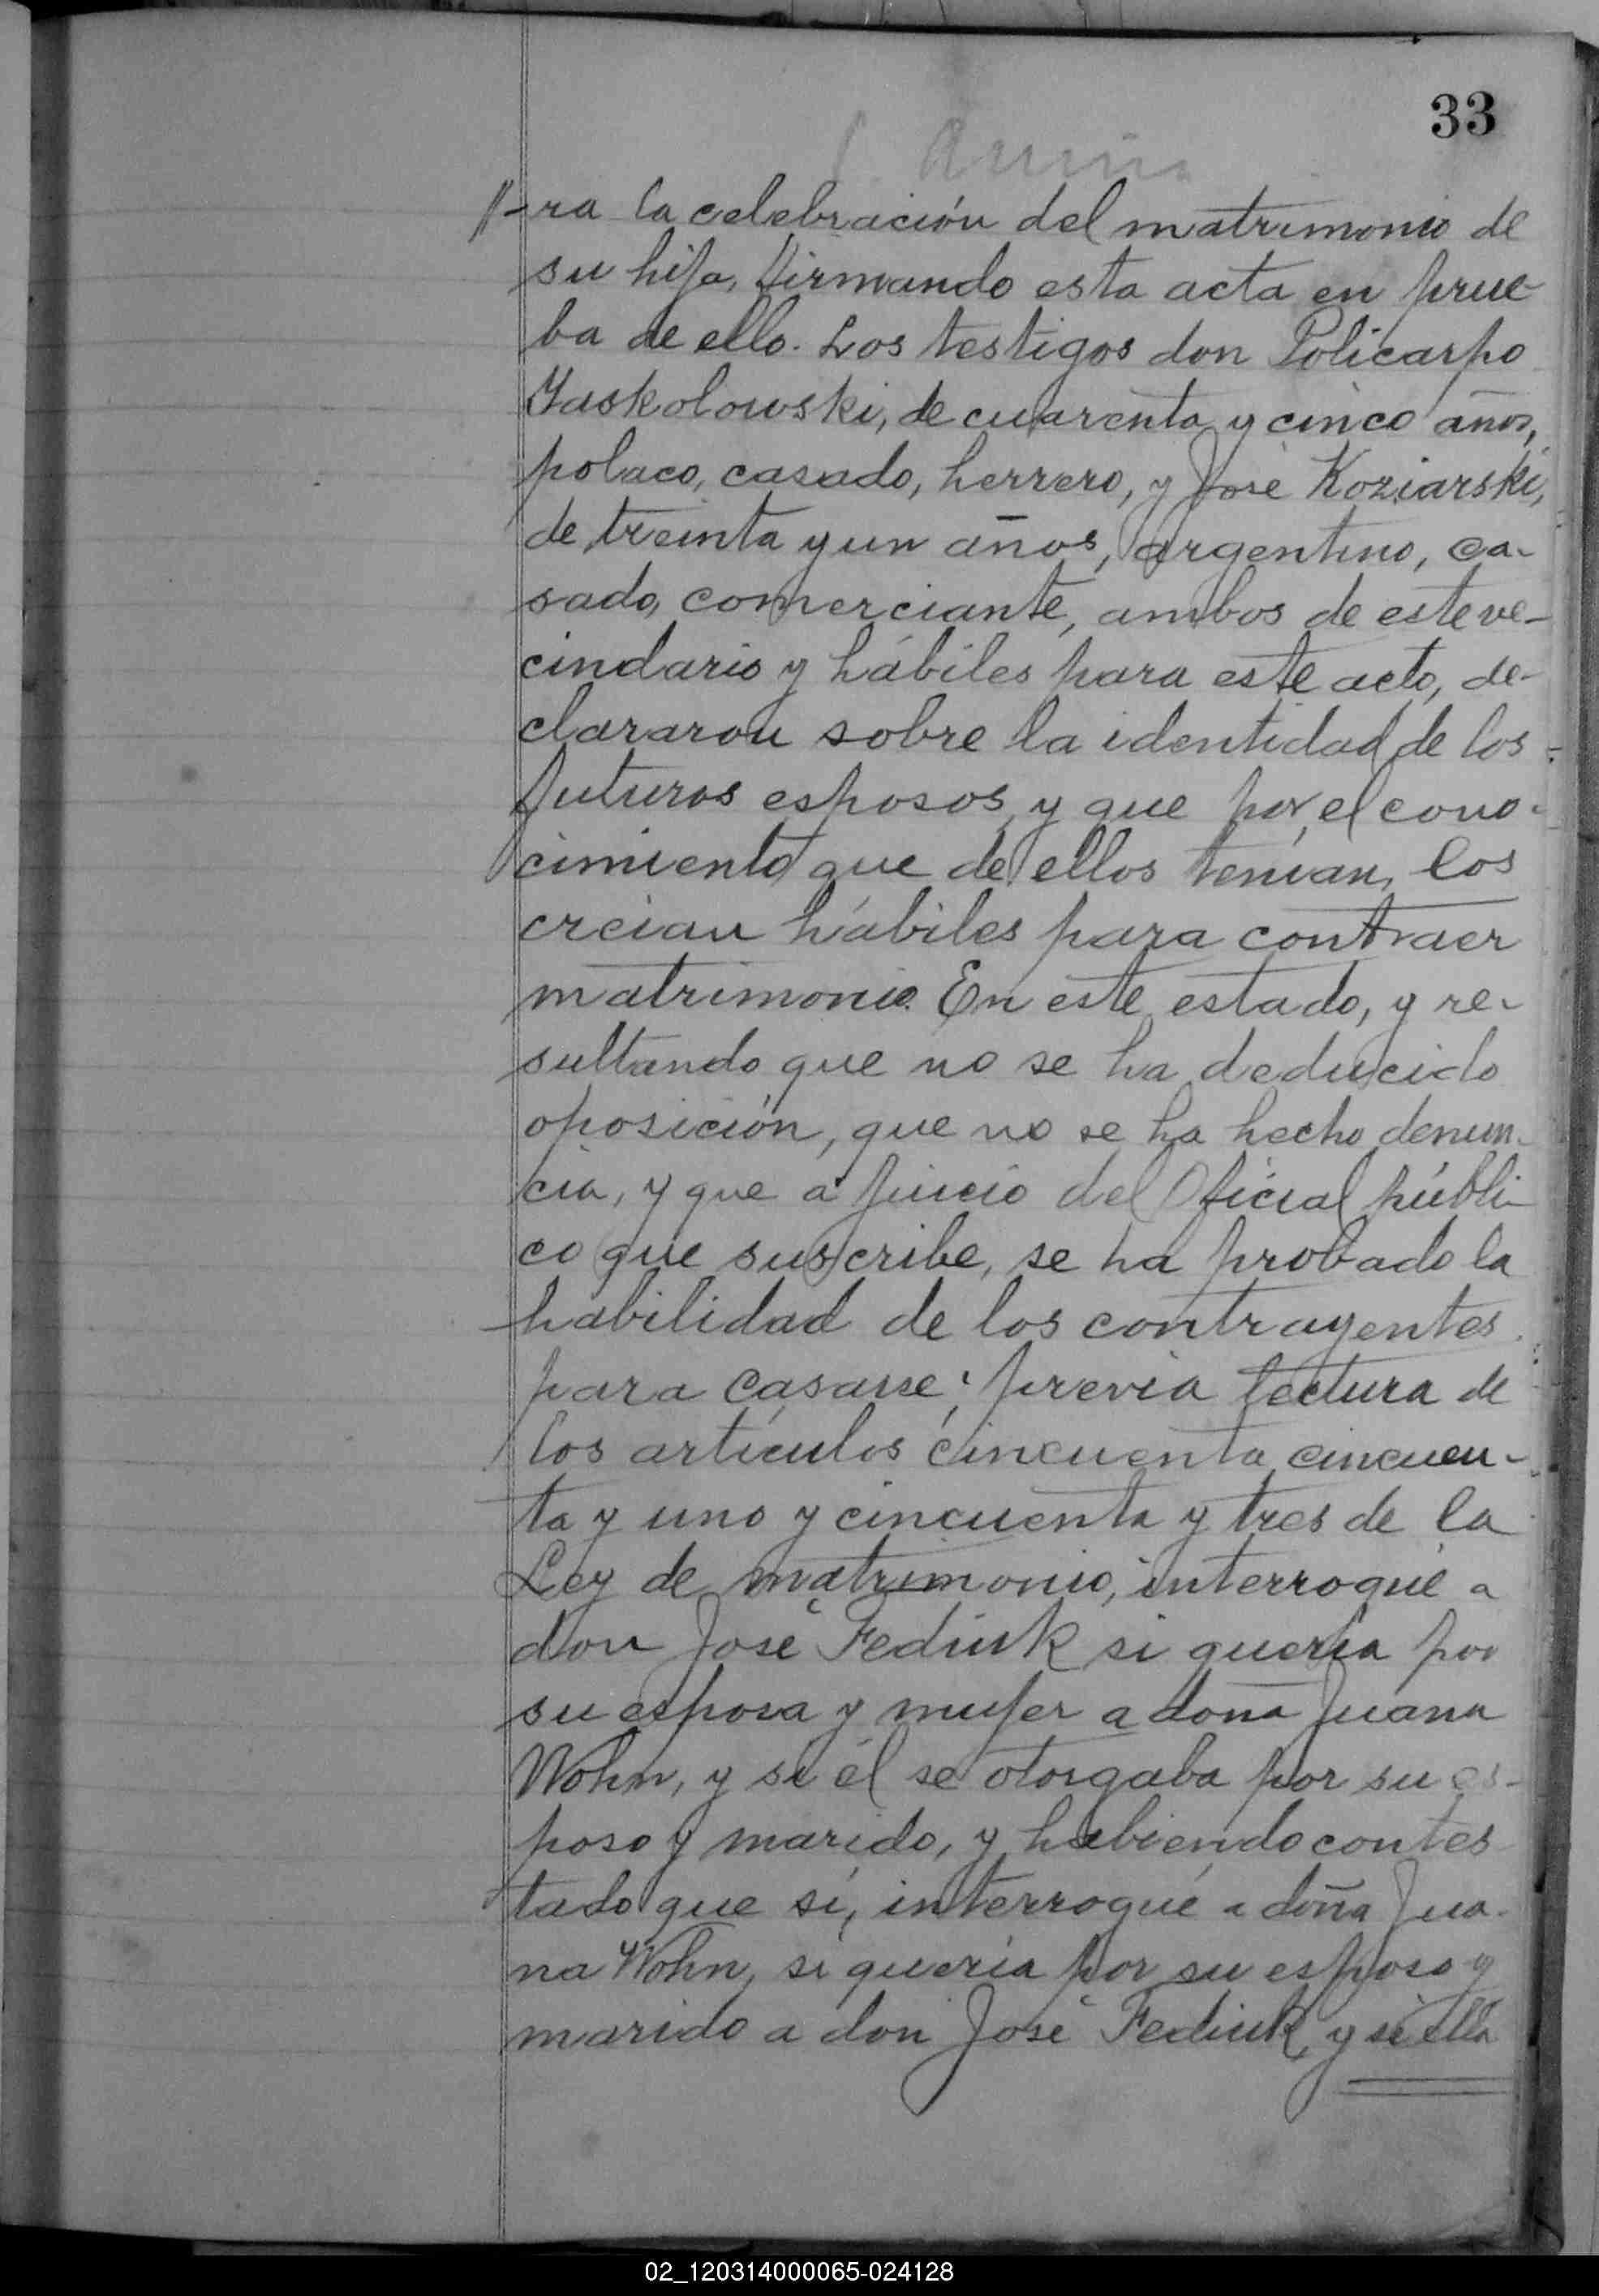 33
//-ra la celebración del matrimonio de
su hija, firmando esta acta en prue-
ba de ello. Los testigos don Policarpo
Yaskolowski, de cuarenta y cinco años,
polaco, casado, herrero, y José Koziarski,
de treinta y un años, argentino, ca-
sado, comerciante, ambos de este ve-
cindario y hábiles para este acto, de-
clararon sobre la identidad de los
futuros esposos, y que por el cono-
cimiento que de ellos tenían, los
creian hábiles para contraer
matrimonio. En este estado, y re-
sultando que no se ha deducido
oposición, que no se ha hecho denun-
cia, y que a juicio del Oficial públi-
co que suscribe, se ha probado la
habilidad de los contrayentes
para casarse; previa lectura de
los artículos cincuenta, cincuen-
ta y uno y cincuenta y tres de la
Ley de matrimonio, interrogué a
don José Fediuk si quería por
su esposa y mujer a doña Juana
Wohn, y si él se otorgaba por su es-
poso y marido, y habiendo contes
tado que sí, interrogué a doña Jua-
na Wohn, si quería por su esposo y
marido a don José Fediuk, y si ella
02_120314000065-024128